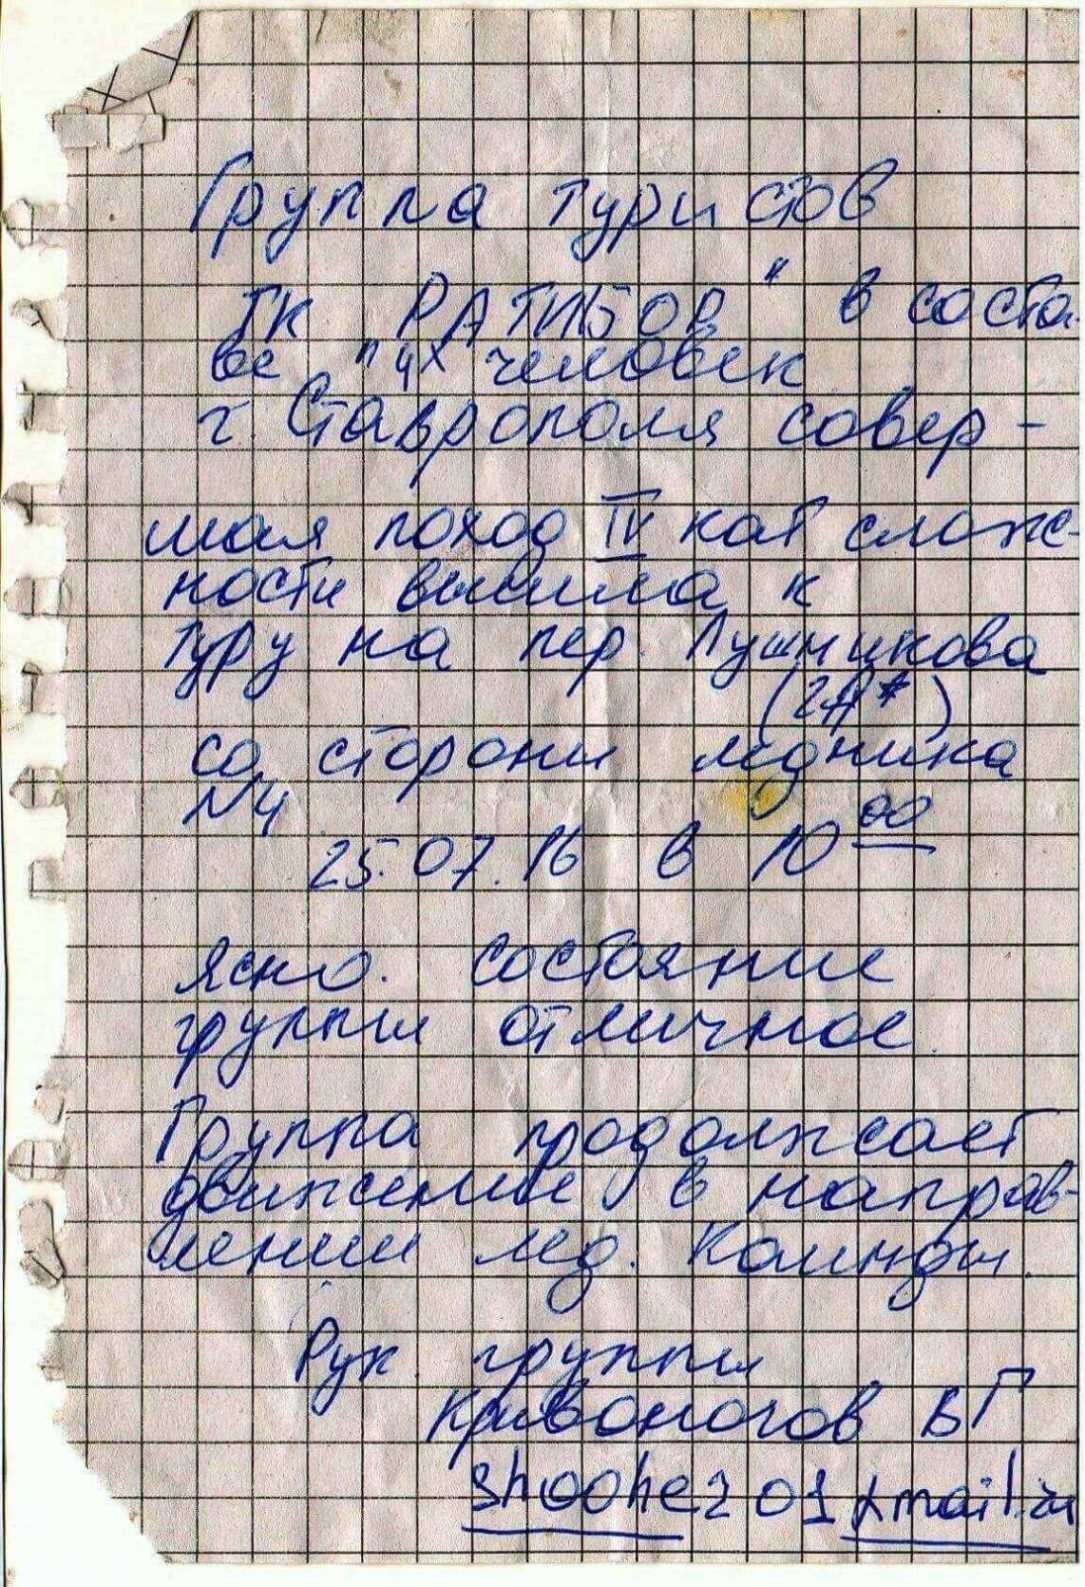 Группа туристов
ТК "РАТИБОР" в соста-
ве 4х человек
г. Ставрополя совер-
шая поход IV кат слож-
ности вышла к
туру на пер. Лушникова
(2А*)
со стороны ледника
N4
25.07.16 в 10 00
Ясно. Состояние
группы отличное.
Группа продолжает
движение в направ-
лении лед. Каинды.
Рук. группы
Кривоногов